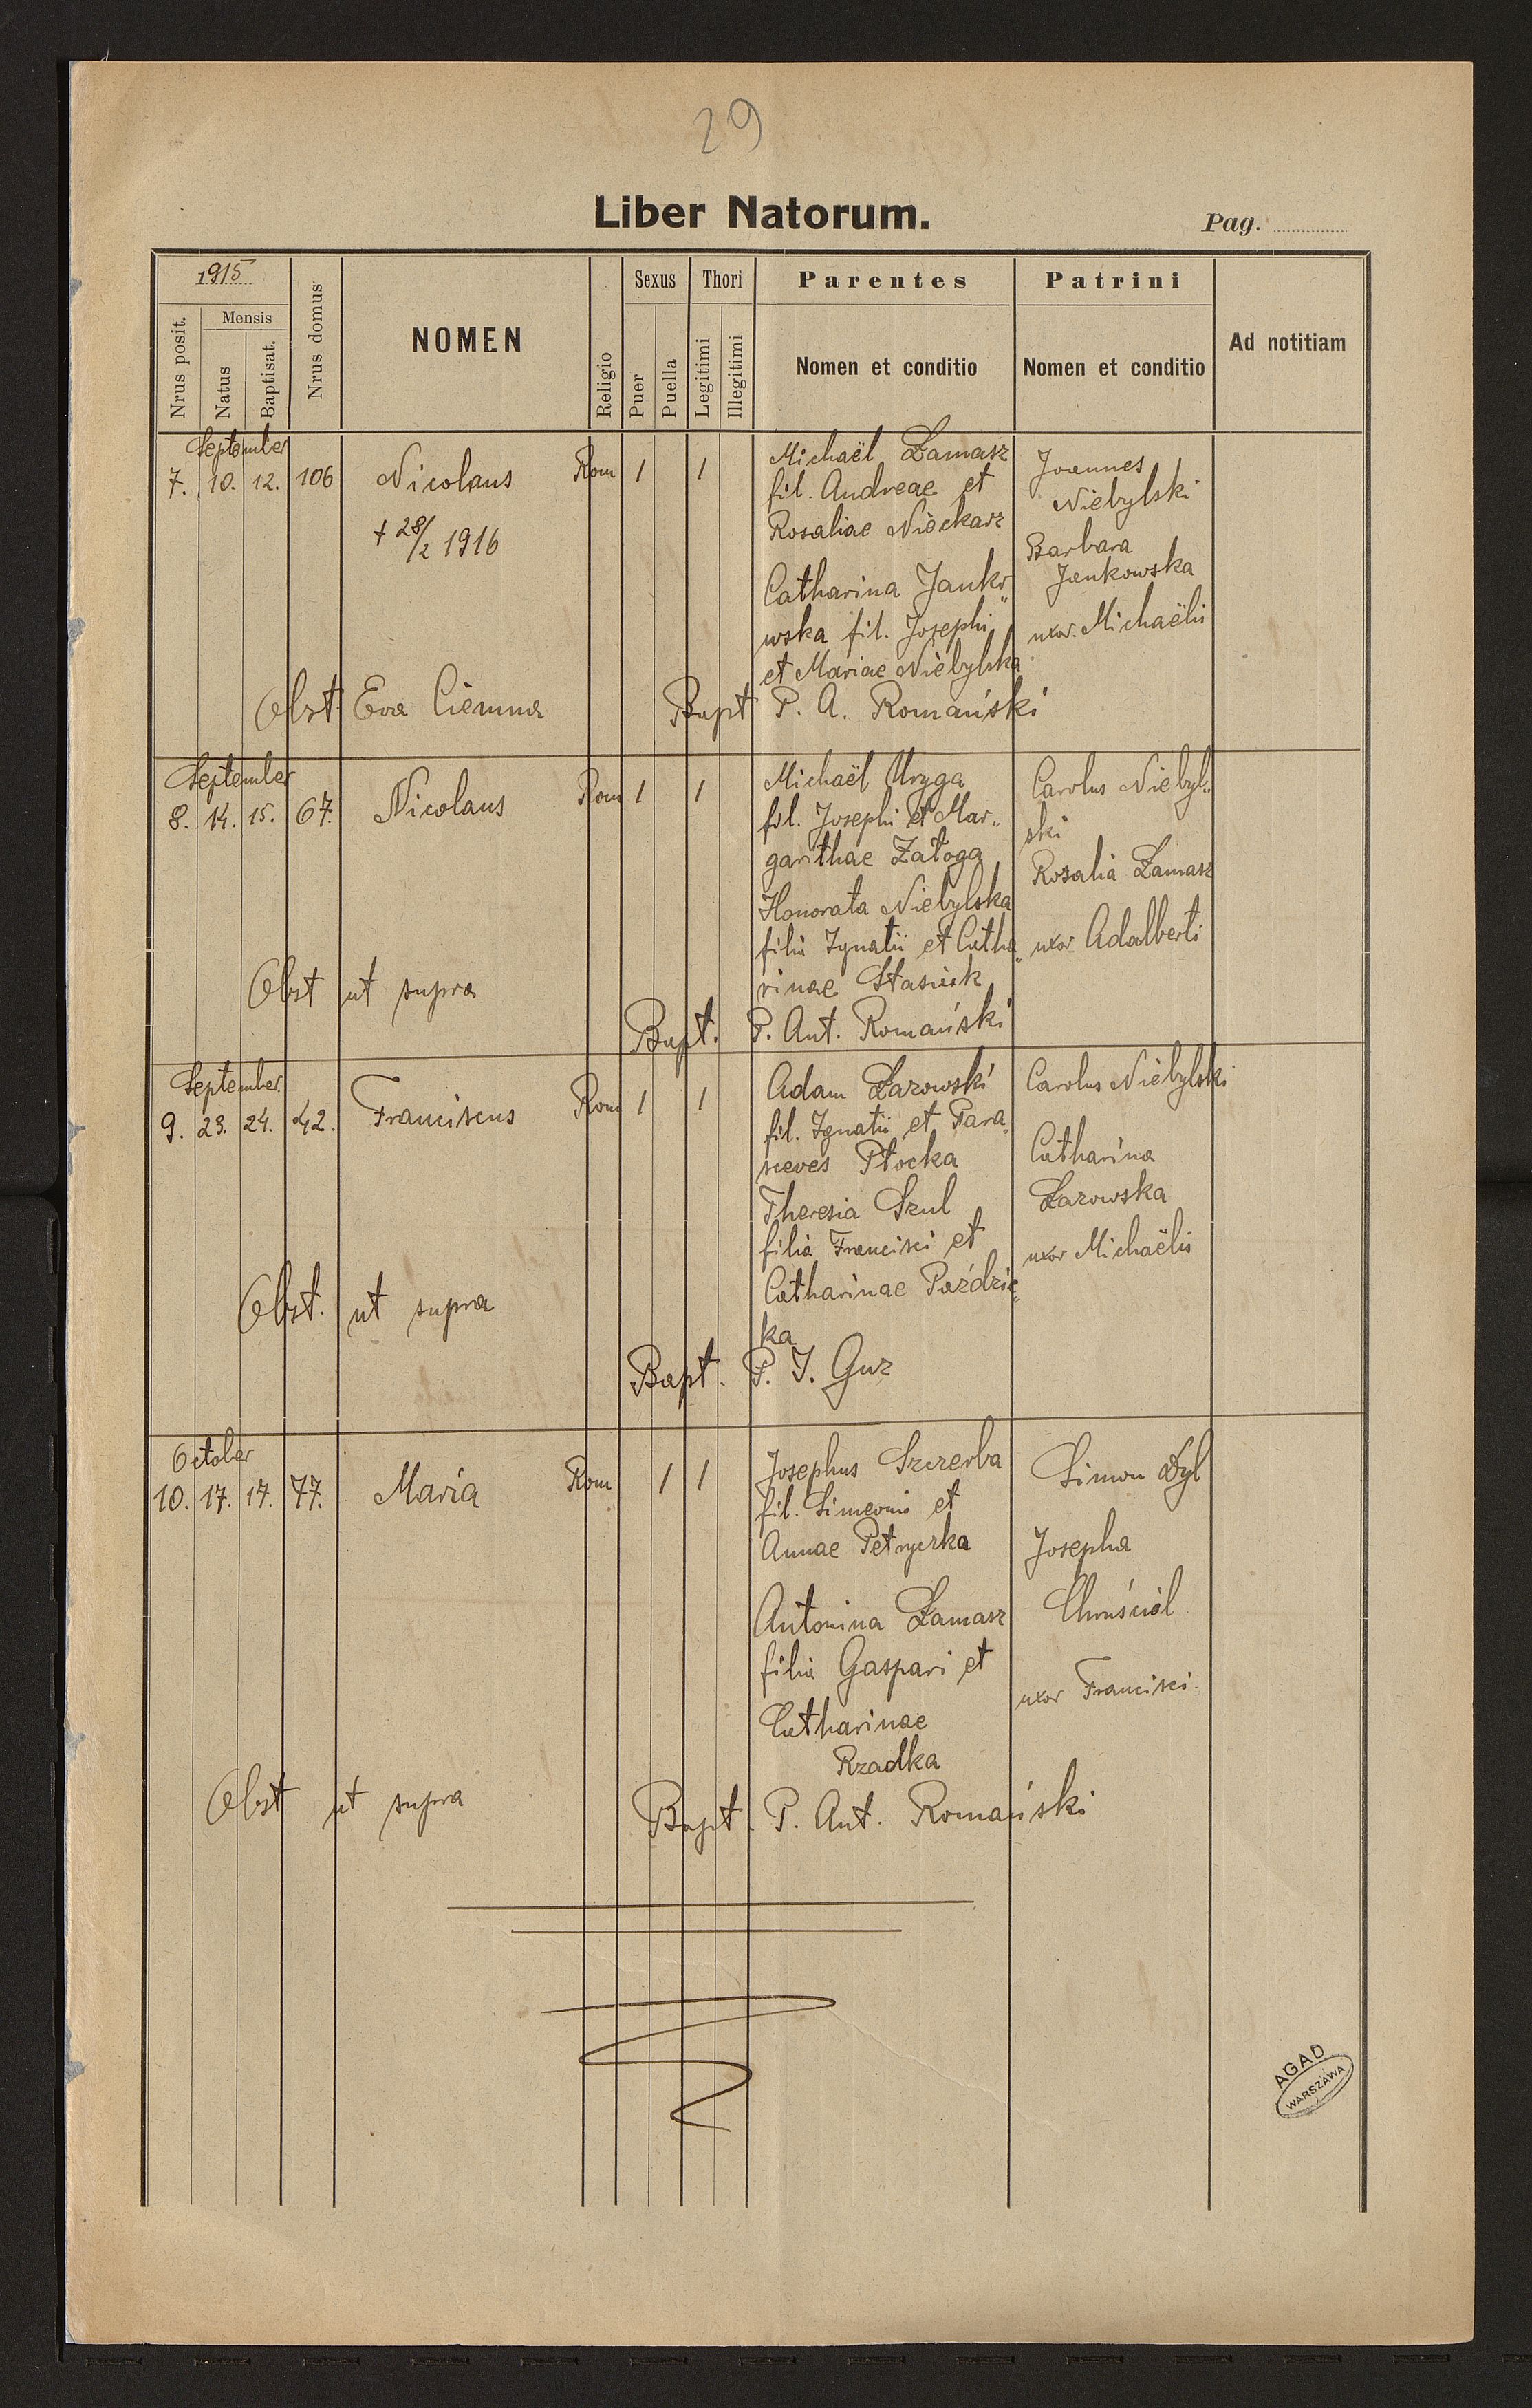 29
Liber Natorum.
Pag.
1915
Nrus posit.
Mensis
Natus
Baptisat.
Nrus domus
NOMEN
Religio
Sexus
Puer
Puella
Thori
Legitimi
Illegitimi
Parentes
Nomen et conditio
Patrini
Nomen et conditio
Ad notitiam
September
7. 10. 12. 106 Nicolaus Rom 1 1
+ 28/2 1916
Michaël Łamasz
fil. Andreae et
Rosaliae Niećkarz
Catharina Janko„
wska fil. Josephi
et Mariae Niebylska
Joannes
Niebylski
Barbara
Jankowska
uxor. Michaëlis
Obst. Eva Ciemna
Bapt P. A. Romański
September
8. 14. 15. 67. Nicolaus Rom 1 1
Michaël Uryga
fil. Josephi et Mar„
garithae Załoga
Honorata Niebylska
filia Ignatii et Catha„
rinae Stasiek
Carolus Niebyl„
ski
Rosalia Łamasz
uxor Adalberti
Obst ut supra
Bapt. P. Ant. Romański
September
9. 23. 24. 42. Franciscus Rom 1 1
Adam Łazowski
fil. Ignatii et Para„
sceves Płocka
Theresia Szul
filia Francisci et
Catharinae Paździo„
ka
Carolus Niebylski
Catharina
Łazowska
uxor Michaëlis
Obst. ut supra
Bapt. P. J. Guz
October
10. 17. 17. 77. Maria Rom 1 1
Josephus Szczerba
fil. Simeonis et
Annae Petryczka
Antonina Łamasz
filia Gaspari et
Catharinae
Rzadka
Simon Dyl
Josepha
Chruściel
uxor Francisci.
Obst ut supra
Bapt. P. Ant. Romański
AGAD
WARSZAWA